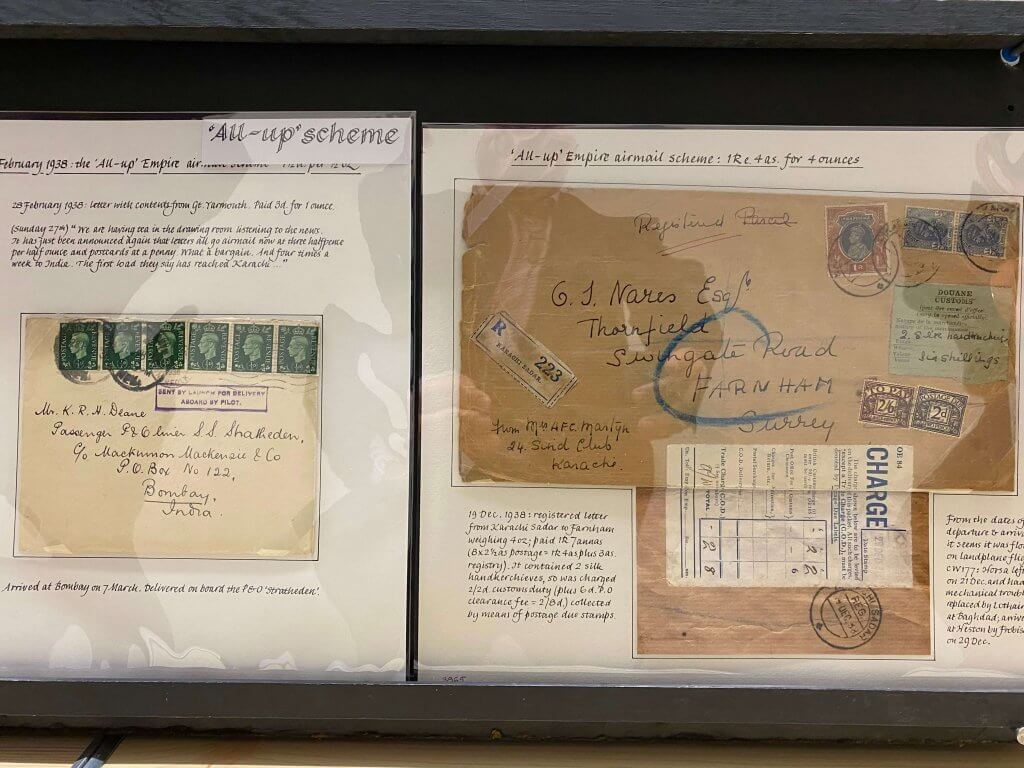 'All-up' scheme
February 1938: the 'All-up' Empire
28 February 1938: letter with contents from Gt. Yarmouth. Paid 3d. for 1 ounce.
(Sunday 27th) "We are having tea in the drawing room listening to the news.
It has just been announced again that letters all go airmail now at three halfpence
per half ounce and postcards at a penny. What a bargain. And four times a
week to India. The first load they say has reached Karachi..."
SENT BY LAUNCH FOR DELIVERY
ABOARD BY PILOT.
Mr. K. R. H. Deane
Passenger P&O liner S.S. Stratheden,
c/o Mackinnon Mackenzie & Co
P.O. Box No 122,
Bombay,
India.
Arrived at Bombay on 7 March. Delivered on board the P&O 'Stratheden'.
'All-up' Empire airmail scheme: 1Re. 4as. for 4 ounces
Registered Parcel
G. J. Nares Esqr.
Thornfield
Swingate Road
FARNHAM
Surrey
R
223
KARACHI SADAR.
from Mrs AFC Martyn
24. Sind Club
Karachi.
DOUANE
CUSTOMS
2. Silk handkerchiefs
six shillings
TO PAY
2/6
POSTAGE DUE
2d
OE 84
CHARGE
TOTAL
2 2
- 6
2 8
19 Dec. 1938: registered letter
from Karachi Sadar to Farnham
weighing 4oz; paid 1R 7annas
(8x2½as postage = 1R 4as plus 3as.
registry). It contained 2 silk
handkerchieves, so was charged
2/2d. customs duty (plus 6d. P.O
clearance fee = 2/8d.) collected
by means of postage due stamps.
From the dates of
departure to arriv
it seems it was flo
on landplane fli
CW177: Horsa left
on 21 Dec. and had
mechanical troubl
replaced by Lothair
at Baghdad; arrive
at Heston by Frobis
on 29 Dec.